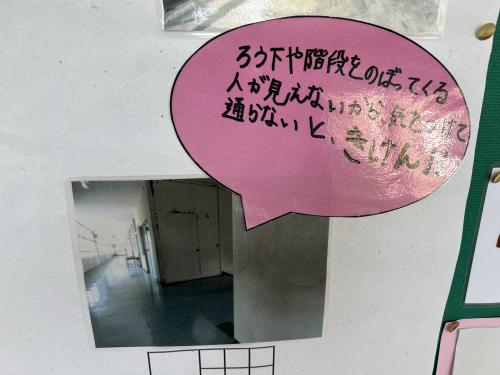 ろう下や階段をのぼってくる
人が見えないから気をつけて
通らないと、きけんだ